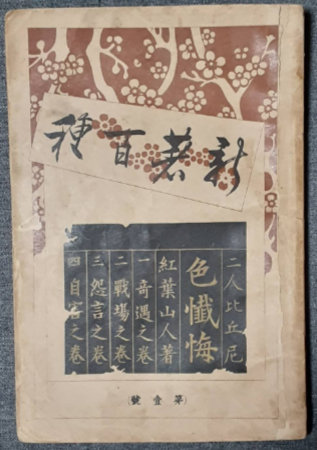 新著百種
二人比丘尼
色懺悔
紅葉山人著
一奇遇之卷
二戰場之卷
三怨言之卷
四自害之卷
(第壹號)